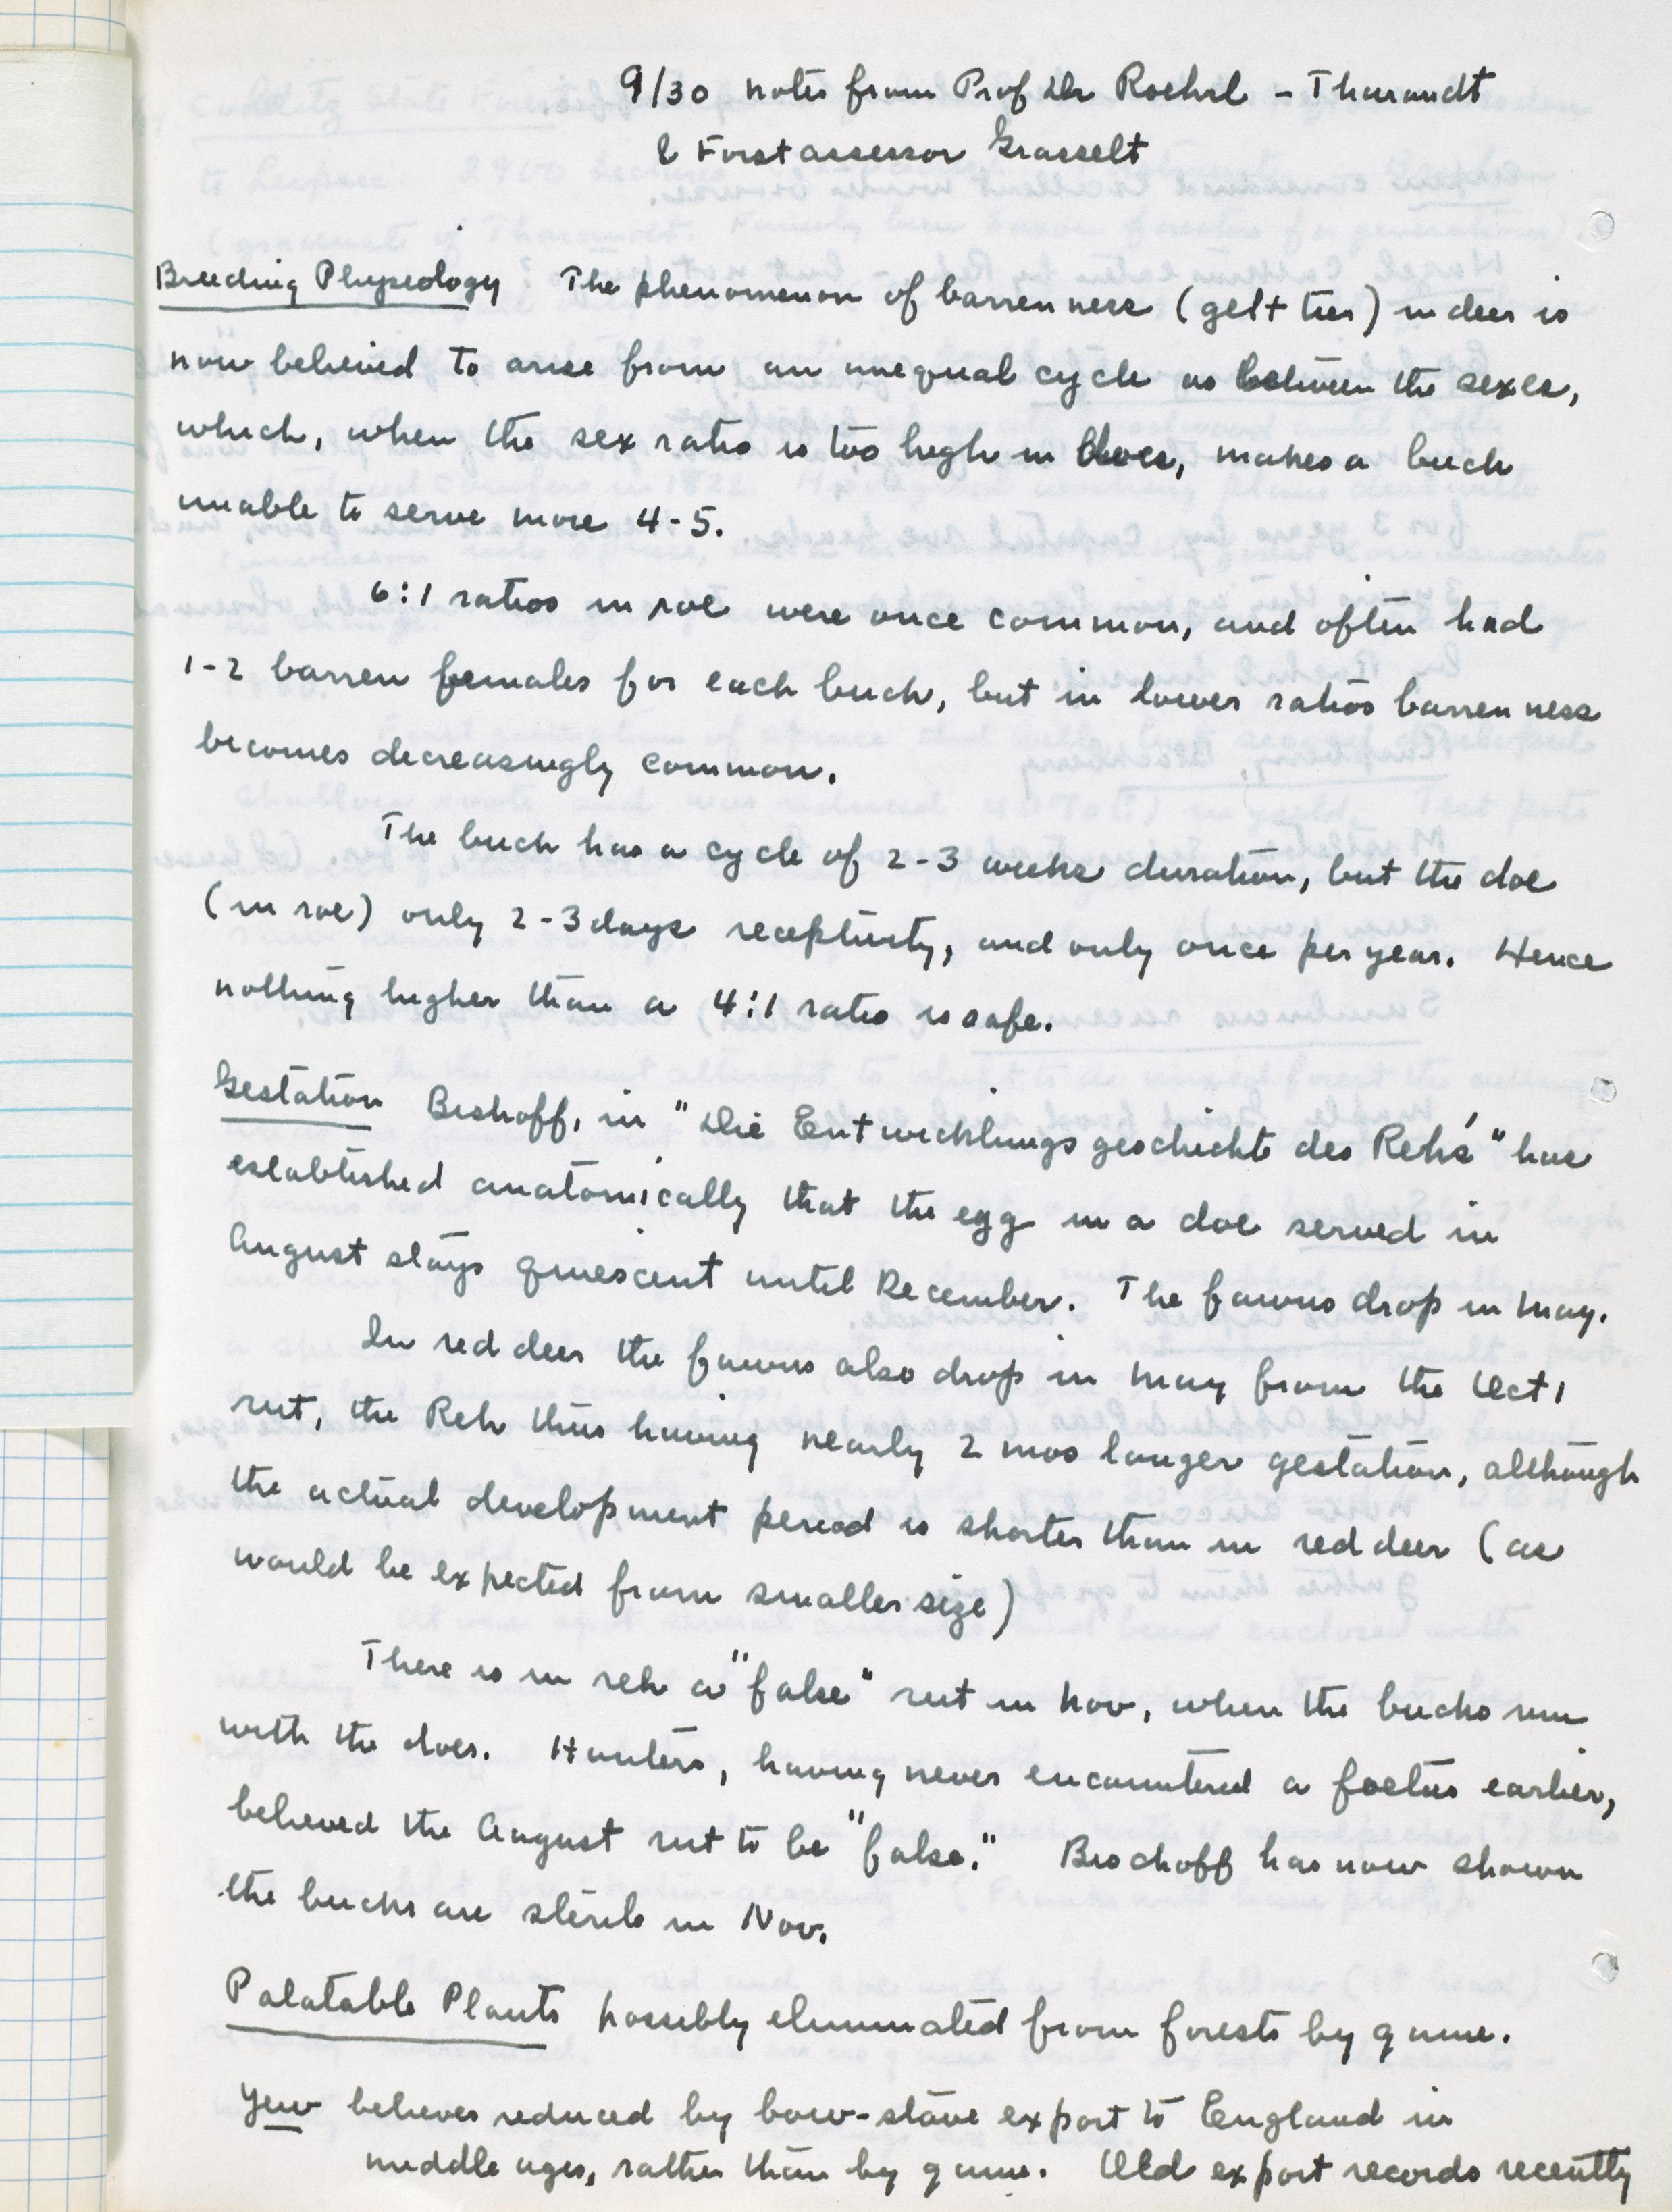 9/30 notes from Prof Dr Roehrl - Tharandt
& Forstassessor Grasselt
Breeding Physeology The phenomenon of barrenness (gelt tier) in deer is
now believed to arise from an unequal cycle as between the sexes,
which, when the sex ratio is too high in does, makes a buck
unable to serve more 4-5.
6:1 ratios in roe were once common, and often had
1-2 barren females for each buck, but in lower ratios barrenness
becomes decreasingly common.
The buck has a cycle of 2-3 weeks duration, but the doe
(in roe) only 2-3 days receptivity, and only once per year. Hence
nothing higher than a 4:1 ratio is safe.
Gestation Bishoff, in "Die Entwicklungsgeschichte des Rehs" has
established anatomically that the egg in a doe served in
August stays quiescent until December. The fawns drop in May.
In red deer the fawns also drop in May from the Oct.
rut, the Reh thus having nearly 2 mos longer gestation, although
the actual development period is shorter than in red deer (as
would be expected from smaller size)
There is in reh a "false" rut in Nov, when the bucks run
with the does. Hunters, having never encountered a foetus earlier,
believed the August rut to be "false." Bischoff has now shown
the bucks are sterile in Nov.
Palatable Plants possibly eliminated from forests by game.
Yew believes reduced by bow-stave export to England in
middle ages, rather than by game. Old export records recently